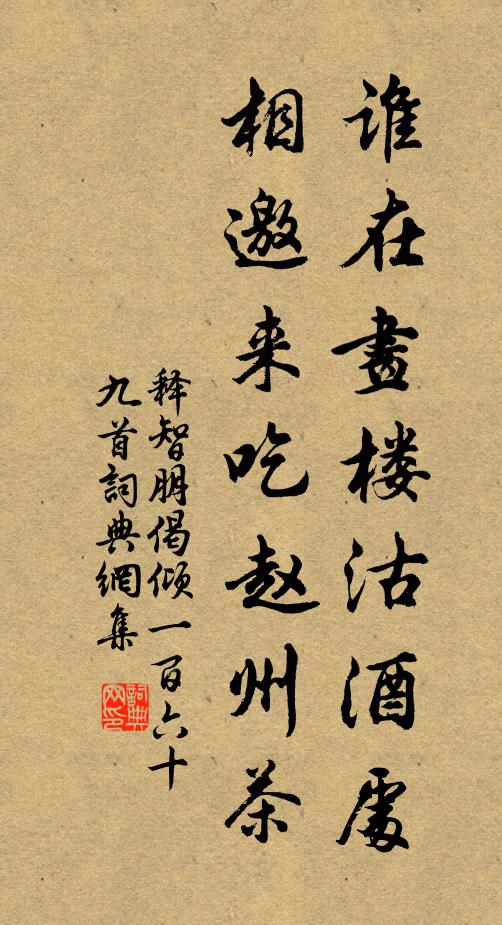 谁在畫楼沽酒處
相邀来吃赵州茶
释智朋偈倾一百六十
九首詞典網集
詞典
网印